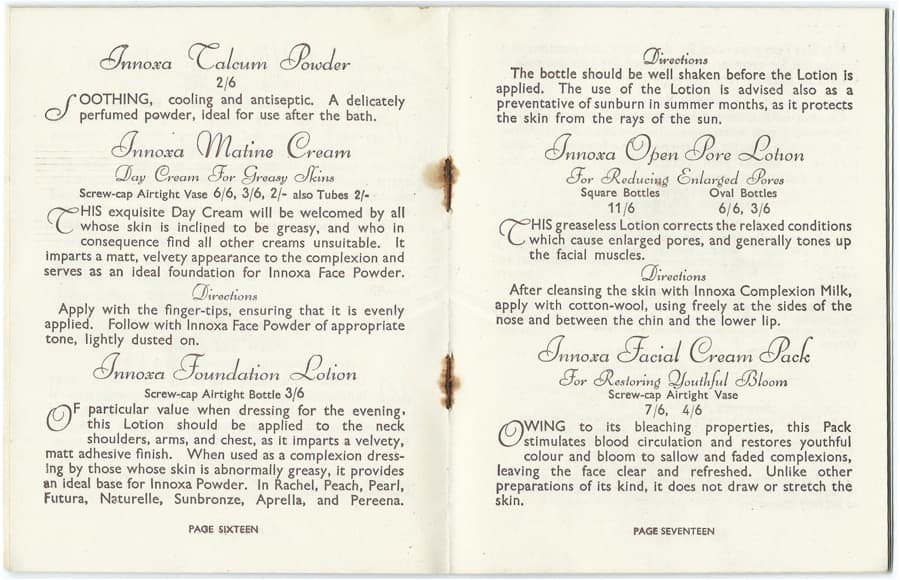 Innoxa Talcum Powder
2/6
SOOTHING, cooling and antiseptic. A delicately
perfumed powder, ideal for use after the bath.
Innoxa Matine Cream
Day Cream For Greasy Skins
Screw-cap Airtight Vase 6/6, 3/6, 2/- also Tubes 2/-
THIS exquisite Day Cream will be welcomed by all
whose skin is inclined to be greasy, and who in
consequence find all other creams unsuitable. It
imparts a matt, velvety appearance to the complexion and
serves as an ideal foundation for Innoxa Face Powder.
Directions
Apply with the finger-tips, ensuring that it is evenly
applied. Follow with Innoxa Face Powder of appropriate
tone, lightly dusted on.
Innoxa Foundation Lotion
Screw-cap Airtight Bottle 3/6
OF particular value when dressing for the evening,
this Lotion should be applied to the neck
shoulders, arms, and chest, as it imparts a velvety,
matt adhesive finish. When used as a complexion dress-
ing by those whose skin is abnormally greasy, it provides
an ideal base for Innoxa Powder. In Rachel, Peach, Pearl,
Futura, Naturelle, Sunbronze, Aprella, and Pereena.
PAGE SIXTEEN
Directions
The bottle should be well shaken before the Lotion is
applied. The use of the Lotion is advised also as a
preventative of sunburn in summer months, as it protects
the skin from the rays of the sun.
Innoxa Open Pore Lotion
For Reducing Enlarged Pores
Square Bottles Oval Bottles
11/6 6/6, 3/6
THIS greaseless Lotion corrects the relaxed conditions
which cause enlarged pores, and generally tones up
the facial muscles.
Directions
After cleansing the skin with Innoxa Complexion Milk,
apply with cotton-wool, using freely at the sides of the
nose and between the chin and the lower lip.
Innoxa Facial Cream Pack
For Restoring Youthful Bloom
Screw-cap Airtight Vase
7/6, 4/6
OWING to its bleaching properties, this Pack
stimulates blood circulation and restores youthful
colour and bloom to sallow and faded complexions,
leaving the face clear and refreshed. Unlike other
preparations of its kind, it does not draw or stretch the
skin.
PAGE SEVENTEEN